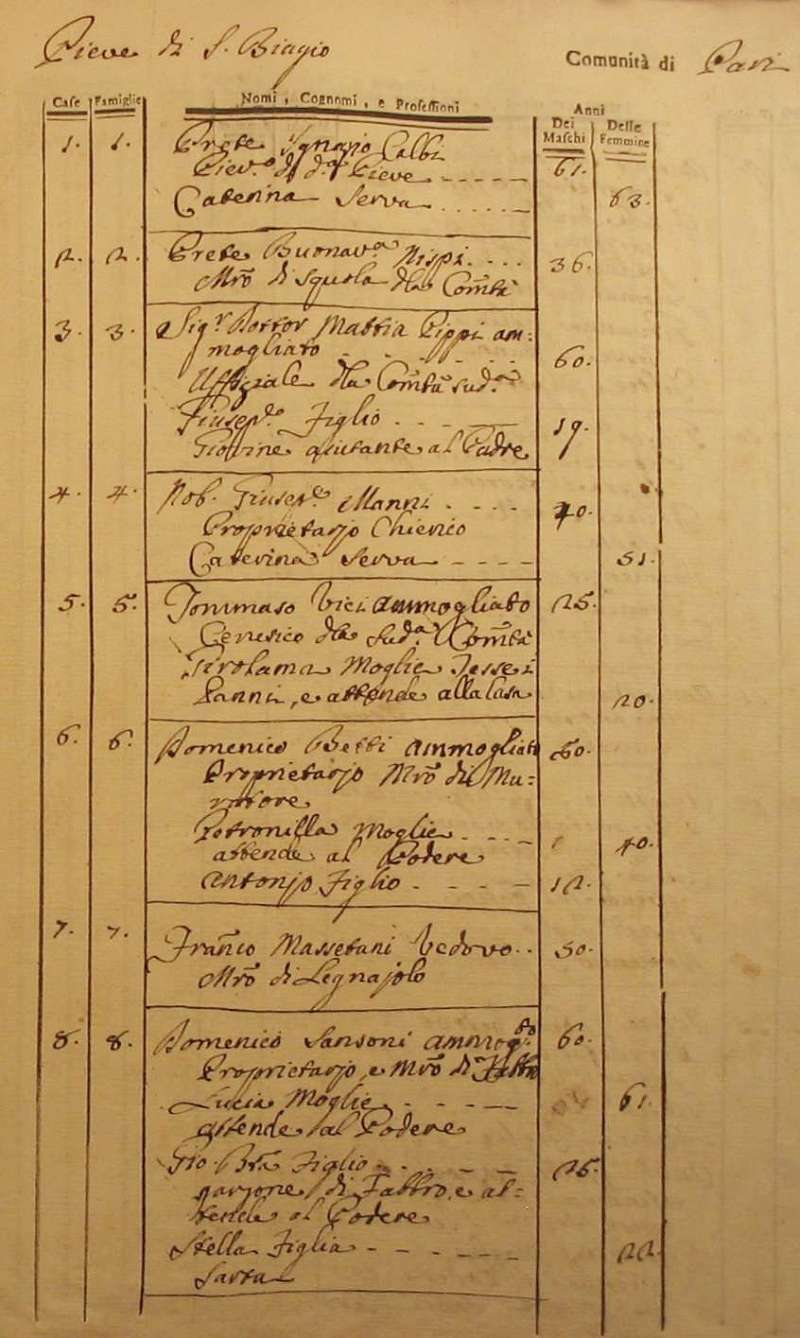 Pieve di S. Biagio Comunità di Pari
Case Famiglie Nomi, Cognomi, e Professioni Anni
Dei Maschi Delle Femmine
1. 1. Prete Ignazio Calbi
Piev.º di d.ª Pieve 61.
Caterina Serva 63.
2. 2. Prete Buonav.ª Nispi 36.
Mrõ di Squola Comtà
3. 3. Sig.r Dottor Mattia Pippi am:
mogliato 60.
Uffiziale Comtà sud.ª
Giusep.e Figlio 19.
Giovine aiutante al Padre
4. 4. Nob. Giusep.e Nanni 40.
Proprietarjo Chierico
Caterina Serva 51.
5. 5. Tommaso Vici ammogliato 25.
Cerusico sud.ª Comtà
Girolama Moglie Tesse i
Panni, e attende alla Casa 20.
6. 6. Domenico Betti ammogliato 60.
Proprietarjo Mrõ di Mu-
ratore
Petronilla Moglie
attende al Podere 40.
Antonjo Figlio 12.
7. 7. Franco Massetani Vedovo 50.
Mrõ di Legnajolo
8. 8. Domenico Sansoni ammog.to 60.
Proprietarjo, e Mrõ di
Lucia Moglie 61.
attende al Podere
Gio. Bta Figlio 25.
garzone di Fabbro, e at:
tende al Podere
Stella Figlia 22.
Sarta